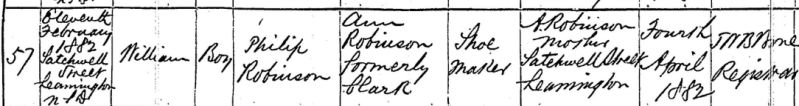 57
Eleventh
February
1882
Satchwell
Street
Leamington
NSD
William
Boy
Philip
Robinson
Ann
Robinson
formerly
Clark
Shoe
Maker
A. Robinson
Mother
Satchwell Street
Leamington
Fourth
April
1882
Registrar